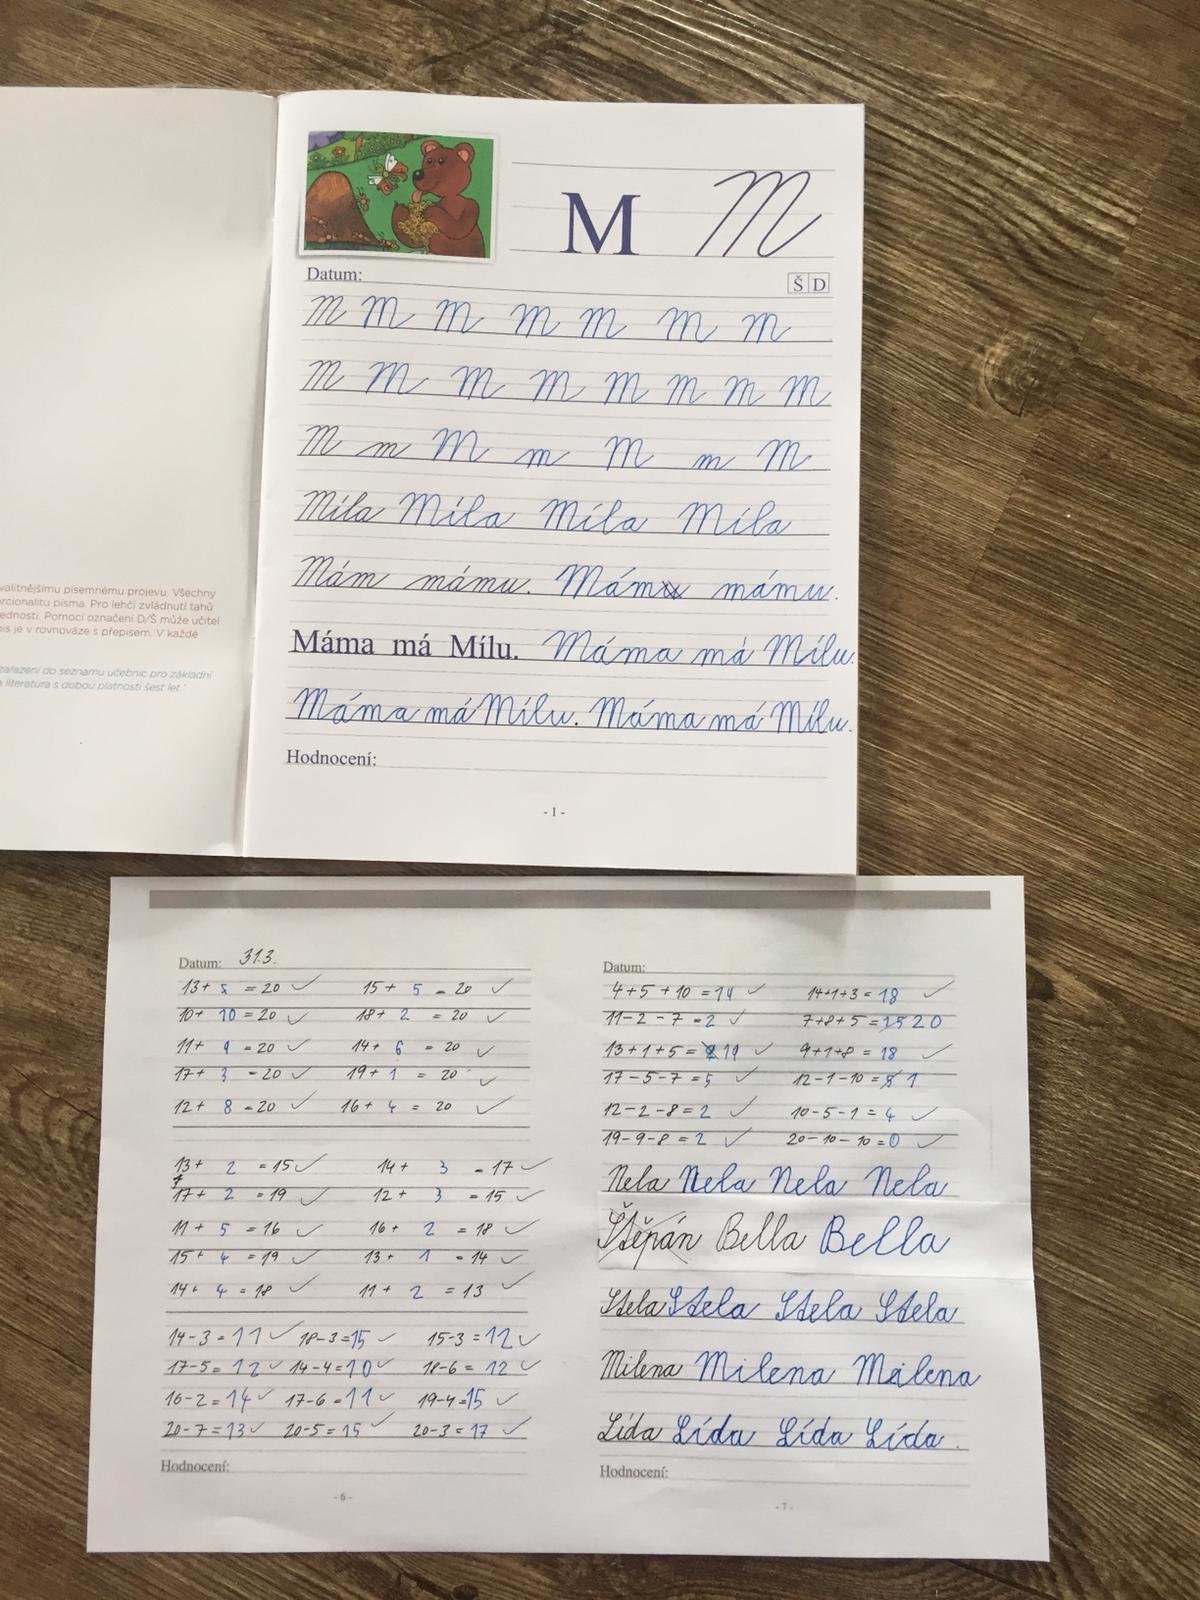 M M
Datum: Š D
M M M M M M M
M M M M M M M M
M m M m M m M
Míla Míla Míla Míla
Mám mámu. Mám mámu.
Máma má Mílu. Máma má Mílu.
Máma má Mílu. Máma má Mílu.
Hodnocení:
- 1 -
valitnějšímu písemnému projevu. Všechny
orcionalitu písma. Pro lehčí zvládnutí tahů
ednosti. Pomocí označení D/Š může učitel
is je v rovnováze s přepisem. V každé
zařazení do seznamu učebnic pro základní
a literatura s dobou platnosti šest let."
Datum: 31.3.
13+ 5 = 20 15+ 5 = 20
10+ 10 = 20 18+ 2 = 20
11+ 9 = 20 14+ 6 = 20
17+ 3 = 20 19+ 1 = 20
12+ 8 = 20 16+ 4 = 20
13+ 2 = 15 14+ 3 = 17
17+ 2 = 19 12+ 3 = 15
11+ 5 = 16 16+ 2 = 18
15+ 4 = 19 13+ 1 = 14
14+ 4 = 18 11+ 2 = 13
14-3=11 18-3=15 15-3=12
17-5=12 14-4=10 18-6=12
16-2=14 17-6=11 19-4=15
20-7=13 20-5=15 20-3=17
Hodnocení:
- 6 -
Datum:
4+5+10=19 14+1+3=18
11-2-7=2 7+8+5=15 20
13+1+5=19 9+1+8=18
17-5-7=5 12-1-10=1
12-2-8=2 10-5-1=4
19-9-8=2 20-10-10=0
Nela Nela Nela Nela
Štěpán Bella Bella
Stela Stela Stela Stela
Milena Milena Milena
Lída Lída Lída Lída.
Hodnocení:
- 7 -